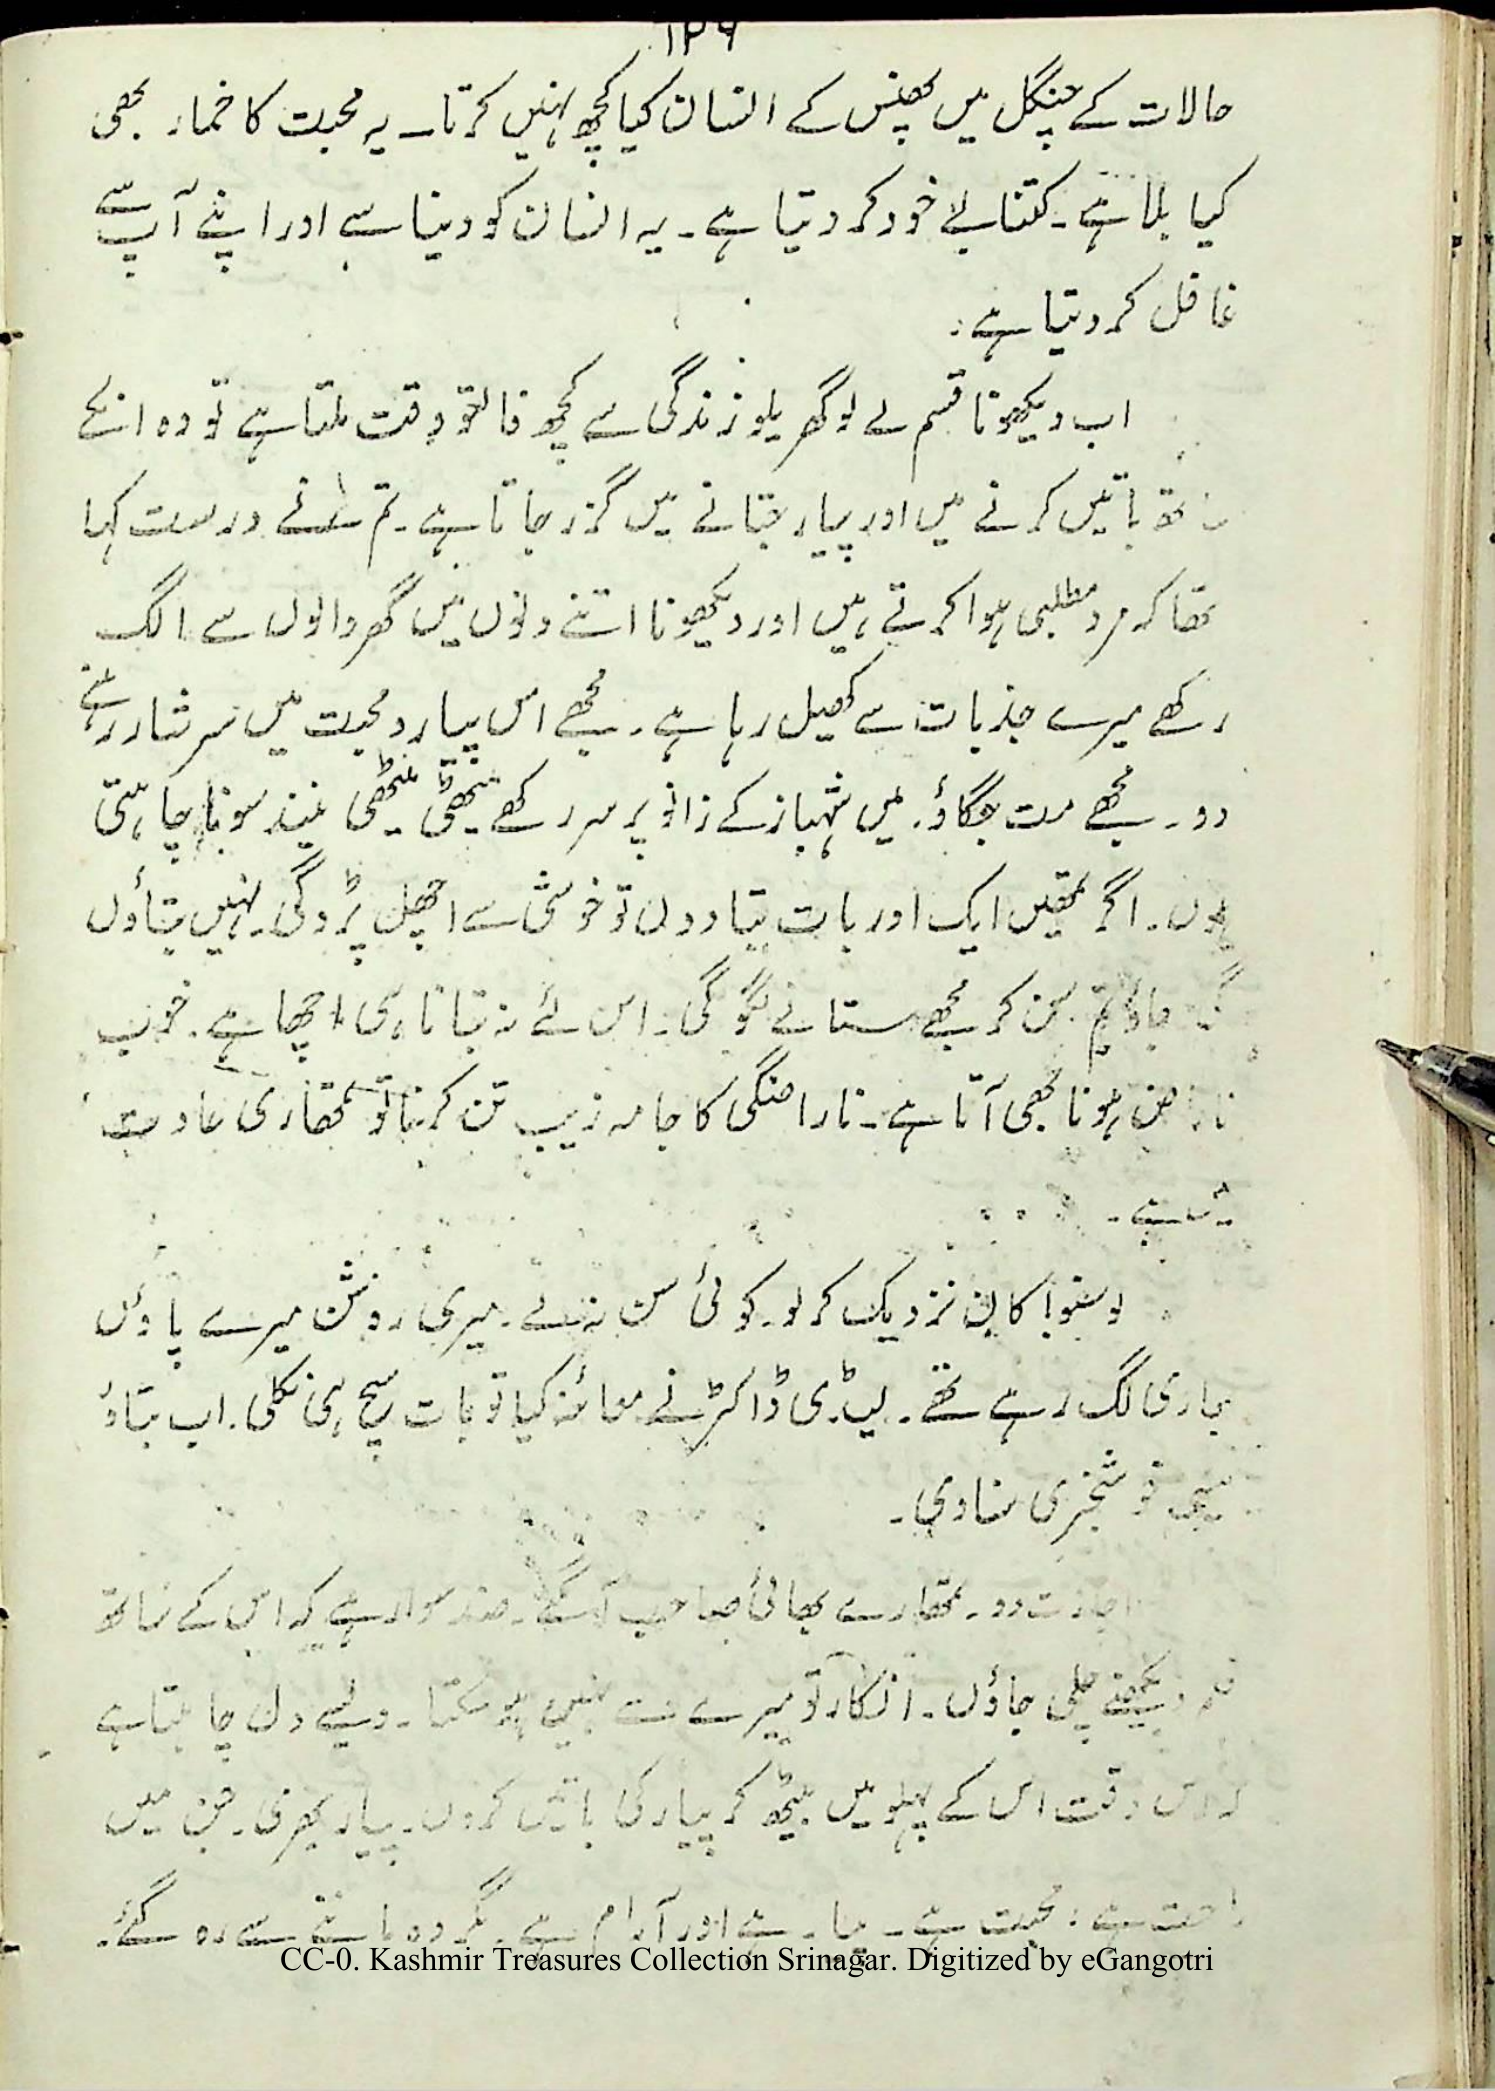 ۱۲۶
حالات کے جنگل میں پھنس کے انسان کیا کچھ نہیں کرتا۔ یہ محبت کا خمار بھی
کیا بلا ہے۔ کتنا بے خود کر دیتا ہے۔ یہ انسان کو دنیا سے اور اپنے آپ سے
غافل کر دیتا ہے۔
اب دیکھو نا قسم لے لو گھریلو زندگی سے کچھ فالتو وقت ملتا ہے تو وہ انکے
ساتھ باتیں کرنے میں اور پیار جتانے میں گزر جاتا ہے۔ تم نے درست کہا
تھا کہ مرد مطلبی ہوا کرتے ہیں اور دیکھو نا اتنے دنوں میں گھر والوں سے الگ
رکھے میرے جذبات سے کھیل رہا ہے۔ مجھے اس پیار و محبت میں سرشار رہنے
دو۔ مجھے مت جگاؤ۔ میں شہباز کے زانو پر سر رکھے میٹھی میٹھی نیند سونا چاہتی
ہوں۔ اگر تمھیں ایک اور بات بتا دوں تو خوشی سے اچھل پڑو گی۔ نہیں بتاؤں
گی جاؤ تم سن کر مجھے ستانے لگو گی۔ اس لئے نہ بتانا ہی اچھا ہے۔ خوب
ناراض ہونا بھی آتا ہے۔ ناراضگی کا جامہ زیب تن کرنا تو تمھاری عادت
ہے۔
لو سنو! کان نزدیک کر لو۔ کوئی سن نہ لے۔ میری روشن میرے پاؤں
بھاری لگ رہے تھے۔ لیڈی ڈاکٹر نے معائنہ کیا تو بات سچ ہی نکلی۔ اب بتاؤ
خوشخبری سنا دی۔
اجازت دو۔ تمھارے بھائی صاحب آ گئے۔ ضد سوار ہے کہ اس کے ساتھ
فلم دیکھنے چلی جاؤں۔ انکار تو میرے سے نہیں ہو سکتا۔ ویسے دل چاہتا ہے
کہ اس وقت اس کے پہلو میں بیٹھ کر پیار کی باتیں کروں۔ پیار بھری۔ جن میں
راحت ہے۔ محبت ہے۔ پیار ہے اور آرام ہے۔ مگر وہ ماننے سے رہ گئے۔
CC-0. Kashmir Treasures Collection Srinagar. Digitized by eGangotri